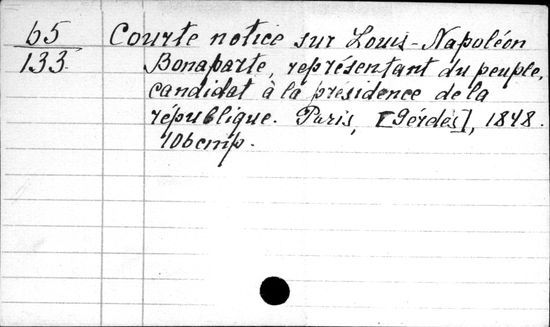 65 Courte notice sur Louis-Napoléon
133 Bonaparte, représentant du peuple,
candidat à la présidence de la
république. Paris, [Gerdès], 1848.